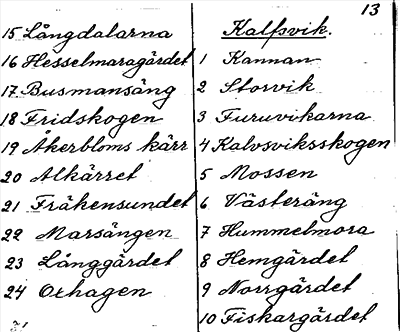 15 Långdalarna
16 Hesselmaragärdet
17 Busmansäng
18 Fridskogen
19 Åkerbloms kärr
20 Alkärret
21 Fräkensundet
22 Marsängen
23 Långgärdet
24 Oxhagen
13
Kalfsvik.
1 Kannan
2 Storvik
3 Furuvikarna
4 Kalvsviksskogen
5 Mossen
6 Västeräng
7 Hummelmora
8 Hemgärdet
9 Norrgärdet
10 Fiskargärdet